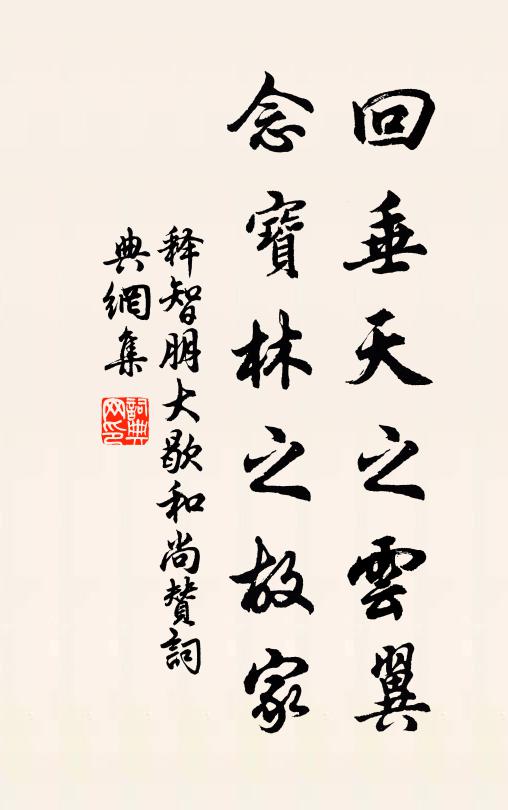 回垂天之雲翼
念寶林之故家
释智朋大歇和尚赞詞
典網集
詞典网印